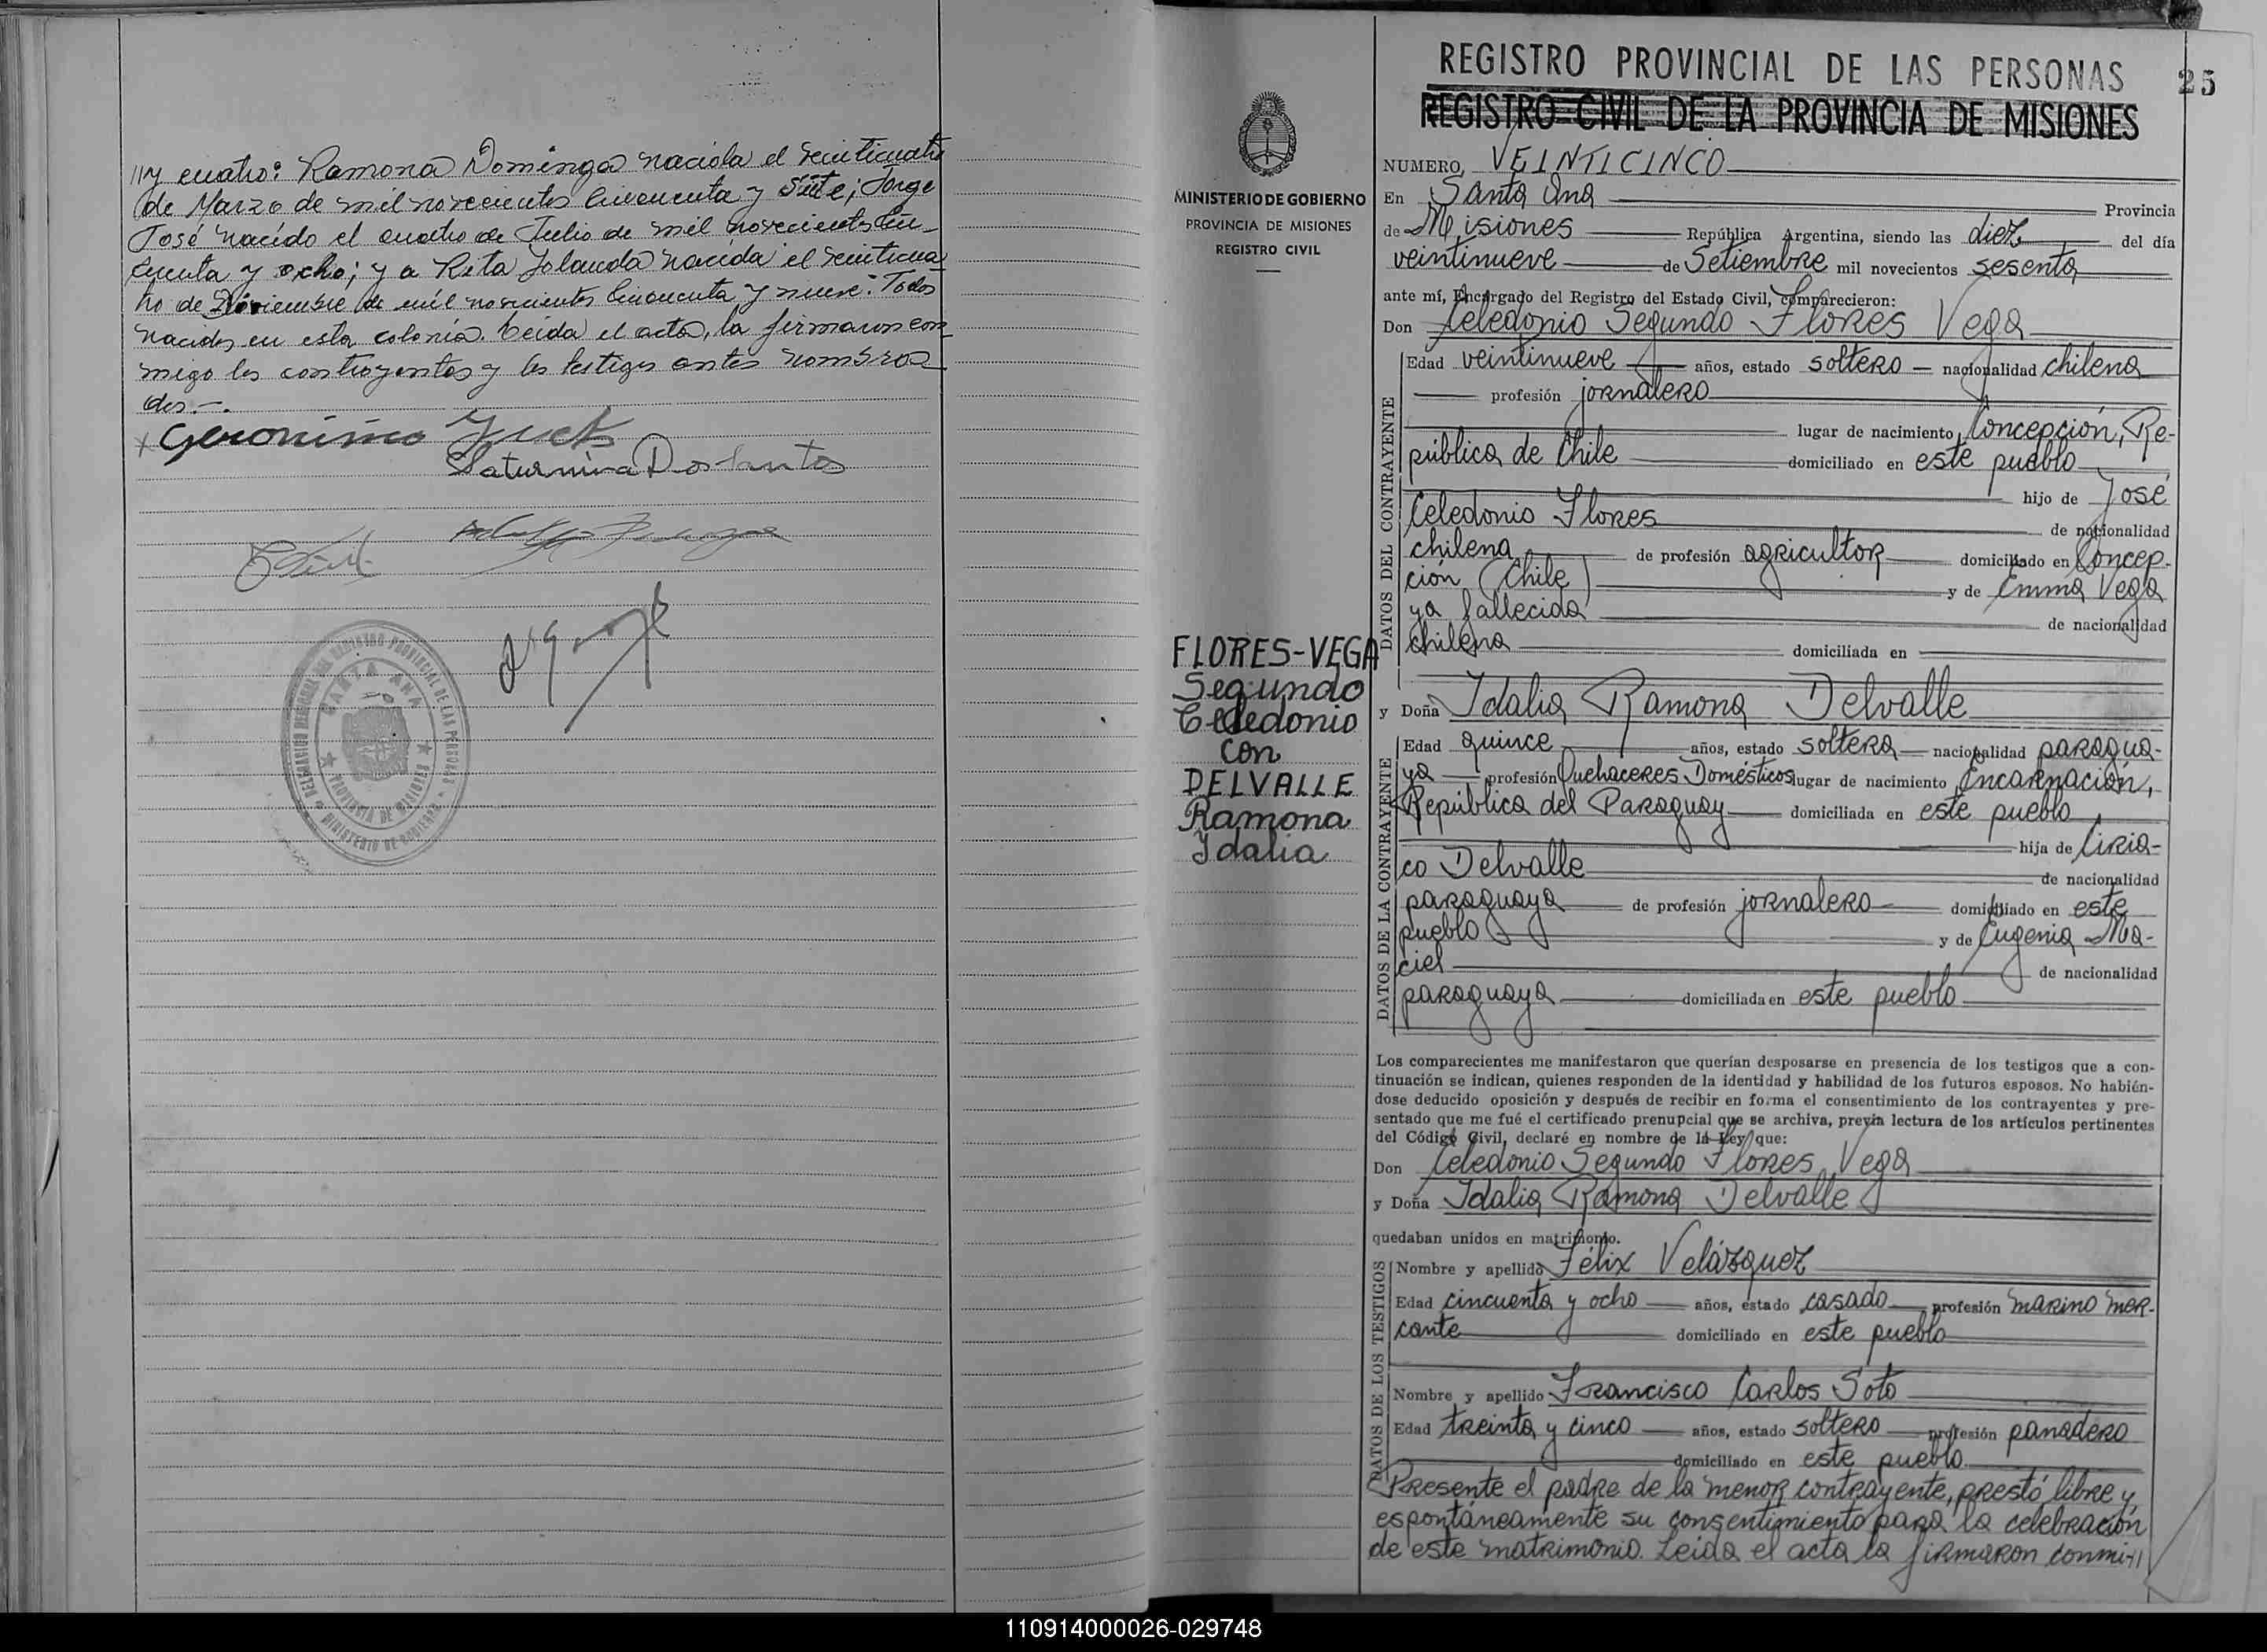 //y cuatro: Ramona Dominga nacida el veinticuatro
de Marzo de mil novecientos cincuenta y siete; Jorge
José nacido el cuatro de Julio de mil novecientos cin-
cuenta y ocho; y a Rita Jolanda nacida el veinticua
tro de Noviembre de mil novecientos cincuenta y nueve: Todos
nacidos en esta colonia. Leida el acta, la firmaron con
migo los contrayentes y los testigos antes nombra
dos.-.
x Geronimo
Saturnina Dos Santos
SANTA ANA
PROVINCIA DE MISIONES
MINISTERIO DE GOBIERNO
MINISTERIO DE GOBIERNO
PROVINCIA DE MISIONES
REGISTRO CIVIL
FLORES-VEGA
Segundo
Celedonio
con
DELVALLE
Ramona
Ydalia
REGISTRO PROVINCIAL DE LAS PERSONAS 25
REGISTRO CIVIL DE LA PROVINCIA DE MISIONES
NUMERO, VEINTICINCO
En Santa Ana Provincia
de Misiones República Argentina, siendo las diez del día
veintinueve de Setiembre mil novecientos sesenta
ante mí, Encargado del Registro del Estado Civil, comparecieron:
Don Celedonio Segundo Flores Vega
DATOS DEL CONTRAYENTE
Edad veintinueve años, estado soltero nacionalidad chilena
profesión jornalero
lugar de nacimiento Concepción, Re-
pública de Chile domiciliado en este pueblo
hijo de José
Celedonio Flores de nacionalidad
chilena de profesión agricultor domiciliado en Concep-
ción (Chile) y de Emma Vega
ya fallecida de nacionalidad
chilena domiciliada en
y Doña Idalia Ramona Delvalle
DATOS DE LA CONTRAYENTE
Edad quince años, estado soltera nacionalidad paragua-
ya profesión Quehaceres Domésticos lugar de nacimiento Encarnación,
República del Paraguay domiciliada en este pueblo
hija de Ciria-
co Delvalle de nacionalidad
paraguaya de profesión jornalero domiciliado en este
pueblo y de Eugenia Ma-
ciel de nacionalidad
paraguaya domiciliada en este pueblo
Los comparecientes me manifestaron que querían desposarse en presencia de los testigos que a con-
tinuación se indican, quienes responden de la identidad y habilidad de los futuros esposos. No habién-
dose deducido oposición y después de recibir en forma el consentimiento de los contrayentes y pre-
sentado que me fué el certificado prenupcial que se archiva, previa lectura de los artículos pertinentes
del Código Civil, declaré en nombre de la Ley que:
Don Celedonio Segundo Flores Vega
y Doña Idalia Ramona Delvalle
quedaban unidos en matrimonio.
DATOS DE LOS TESTIGOS
Nombre y apellido Félix Velázquez
Edad cincuenta y ocho años, estado casado profesión marino mer-
cante domiciliado en este pueblo
Nombre y apellido Francisco Carlos Soto
Edad treinta y cinco años, estado soltero profesión panadero
domiciliado en este pueblo
Presente el padre de la menor contrayente, prestó libre y
espontáneamente su consentimiento para la celebración
de este matrimonio. Leida el acta la firmaron conmi-//
110914000026-029748